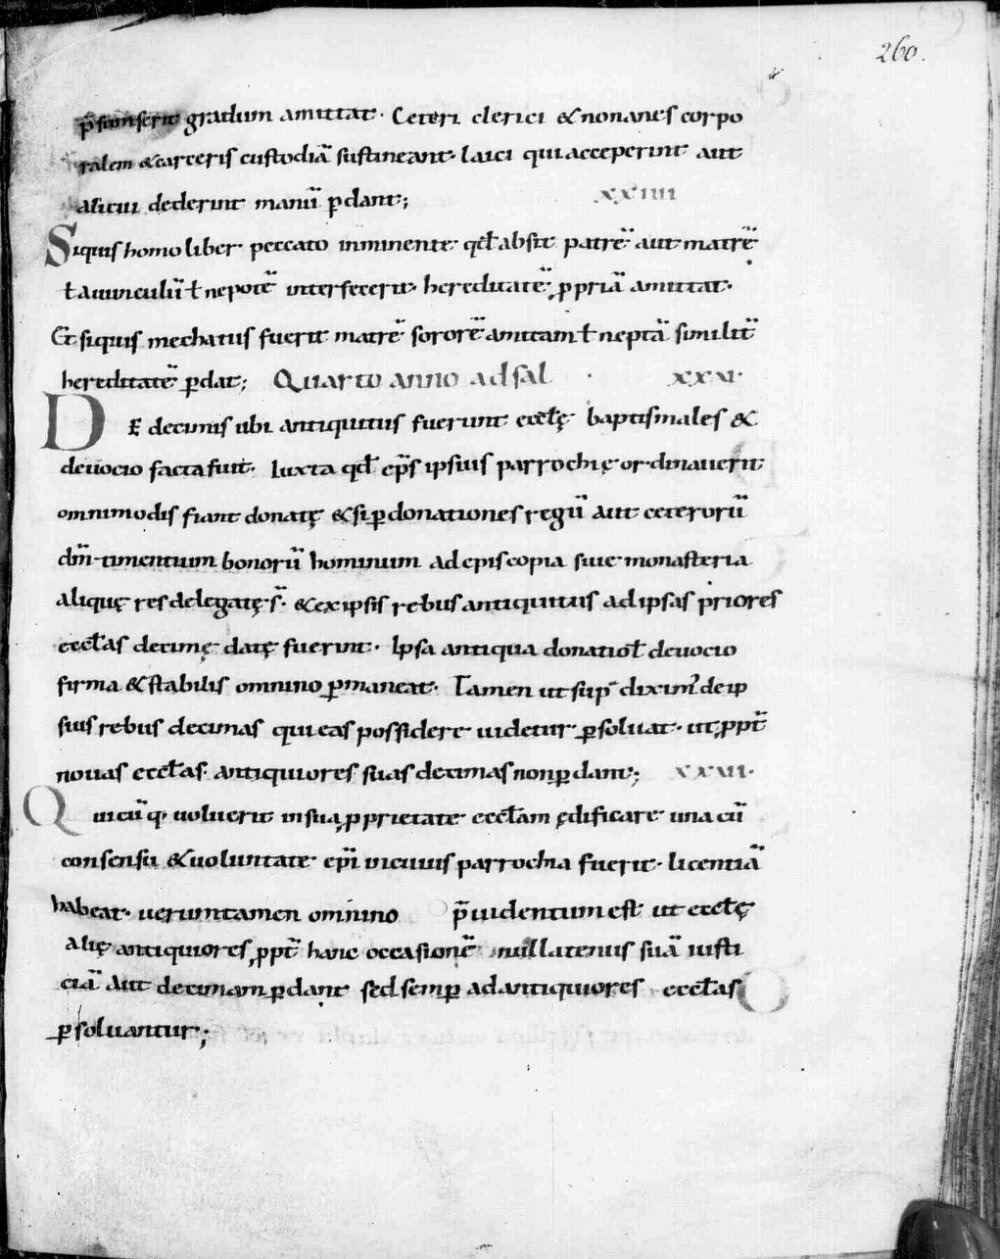 260.
p̄sumserit gradum amittat· Ceteri clerici & nonanes corpo
ralem & carceris custodiā sustineant· laici qui acceperint aut
alicui dederint manū ꝑdant;
xxiiii
Siquis homo liber peccato inminente· qđ absit patrē aut matrē
ł auunculū ł nepotē interfecerit· hereditatē ꝓpriā amittat·
Et siquis mechatus fuerit matrē sororē amitam ł neptā similit̄
hereditatē ꝑdat; Quarto anno ad sal xxvi·
DE decimis ubi antiquitus fuerunt eccłę baptismales &
deuocio facta fuit· Iuxta qđ ep̄s ipsius parrochię ordinauerit
omnimodis fiant donatę & si ꝑ donationes regū aut ceterorū
dm̄ timentium bonorū hominum ad episcopia siue monasteria
alique res delegatę s̄· & ex ipsis rebus antiquitus ad ipsas priores
eccłas decimę datę fuerint· Ipsa antiqua donatio ł deuocio
firma & stabilis omnino ꝑmaneat· Tamen ut sup̄ diximꝰ de ip
sius rebus decimas qui eas possidere uidetur ꝑsoluat· ut ꝓpt̄
nouas eccłas· antiquiores suas decimas non ꝑdant; xxvii·
Quicūq· uoluerit in sua ꝓprietate eccłam ędificare una cū
consensu & uoluntate ep̄i in cuius parrochia fuerit· licentiā
habeat· ueruntamen omnino p̄uidentum est ut eccłę
alię antiquiores ꝓpt̄ hanc occasionē nullatenus suā iusti
ciā aut decimam ꝑdant sed semꝑ ad antiquiores eccłas
ꝑsoluantur;